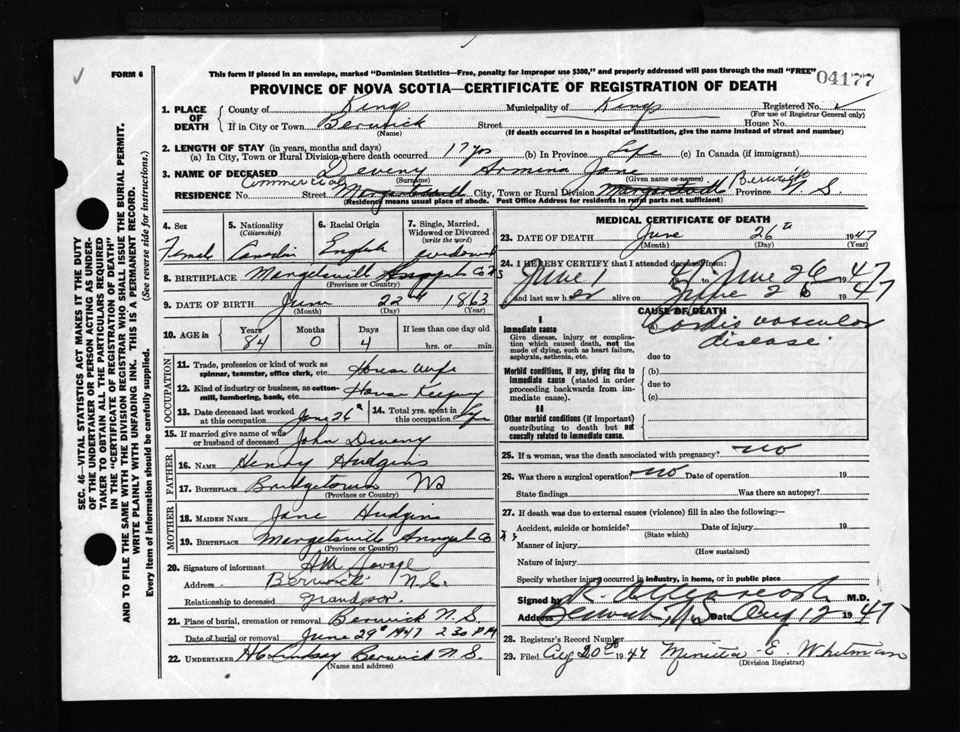 FORM 6
This form if placed in an envelope, marked "Dominion Statistics—Free, penalty for improper use $300," and properly addressed will pass through the mail "FREE"
04177
PROVINCE OF NOVA SCOTIA—CERTIFICATE OF REGISTRATION OF DEATH
1. PLACE OF DEATH
County of Kings Municipality of Kings Registered No.
(For use of Registrar General only)
If in City or Town Berwick Street House No.
(Name) (If death occurred in a hospital or institution, give the name instead of street and number)
2. LENGTH OF STAY (in years, months and days)
(a) In City, Town or Rural Division where death occurred 17 yrs (b) In Province Life (c) In Canada (if immigrant)
3. NAME OF DECEASED Deveny Armina Jane
(Surname) (Given name or names)
RESIDENCE No. Commercial Street City, Town or Rural Division Berwick Province N. S.
(Residence means usual place of abode. Post Office Address for residents in rural parts not sufficient)
4. Sex
Female
5. Nationality
(Citizenship)
6. Racial Origin
English
7. Single, Married, Widowed or Divorced
(write the word)
8. BIRTHPLACE Margetsville
(Province or Country)
9. DATE OF BIRTH June 22nd 1863
(Month) (Day) (Year)
10. AGE in
Years 84
Months 0
Days 4
If less than one day
hrs. or min.
OCCUPATION
11. Trade, profession or kind of work as spinner, teamster, office clerk, etc. House wife
12. Kind of industry or business, as cotton-mill, lumbering, bank, etc. House Keeping
13. Date deceased last worked at this occupation June 26th
14. Total yrs. spent in this occupation
15. If married give name of wife or husband of deceased John Deveny
FATHER
16. NAME Henry Hudgins
17. BIRTHPLACE Bridgetown NS
(Province or Country)
MOTHER
18. MAIDEN NAME Jane Hudgins
19. BIRTHPLACE Margetsville Co
(Province or Country)
20. Signature of informant Savage
Address Berwick N.S.
Relationship to deceased grandson.
21. Place of burial, cremation or removal Berwick N. S.
Date of burial or removal June 29th 1947 2 30 PM
22. UNDERTAKER Lindsay Berwick N. S.
(Name and address)
MEDICAL CERTIFICATE OF DEATH
23. DATE OF DEATH June 26th 1947
(Month) (Day) (Year)
24. I HEREBY CERTIFY that I attended deceased from:
June 1 47 to June 26 1947
and last saw her alive on June 26 1947
CAUSE OF DEATH
I
Immediate cause
Give disease, injury or complication which caused death, not the mode of dying, such as heart failure, asphyxia, asthenia, etc.
Cardio vascular
disease.
due to
Morbid conditions, if any, giving rise to immediate cause (stated in order proceeding backwards from immediate cause).
(b)
due to
(c)
II
Other morbid conditions (if important) contributing to death but not causally related to immediate cause.
25. If a woman, was the death associated with pregnancy? no
26. Was there a surgical operation? no Date of operation 19
State findings Was there an autopsy?
27. If death was due to external causes (violence) fill in also the following:—
Accident, suicide or homicide? Date of injury 19
(State which)
Manner of injury
(How sustained)
Nature of injury
Specify whether injury occurred in industry, in home, or in public place
Signed by M.D.
Address Berwick, N.S. Date Aug 12 1947
28. Registrar's Record Number
29. Filed Aug 20th 1947 E. Whitman
(Division Registrar)
SEC. 46—VITAL STATISTICS ACT MAKES IT THE DUTY
OF THE UNDERTAKER OR PERSON ACTING AS UNDER-
TAKER TO OBTAIN ALL THE PARTICULARS REQUIRED
IN THE "CERTIFICATE OF REGISTRATION OF DEATH"
AND TO FILE THE SAME WITH THE DIVISION REGISTRAR WHO SHALL ISSUE THE BURIAL PERMIT.
WRITE PLAINLY WITH UNFADING INK. THIS IS A PERMANENT RECORD.
Every item of information should be carefully supplied. (See reverse side for instructions.)